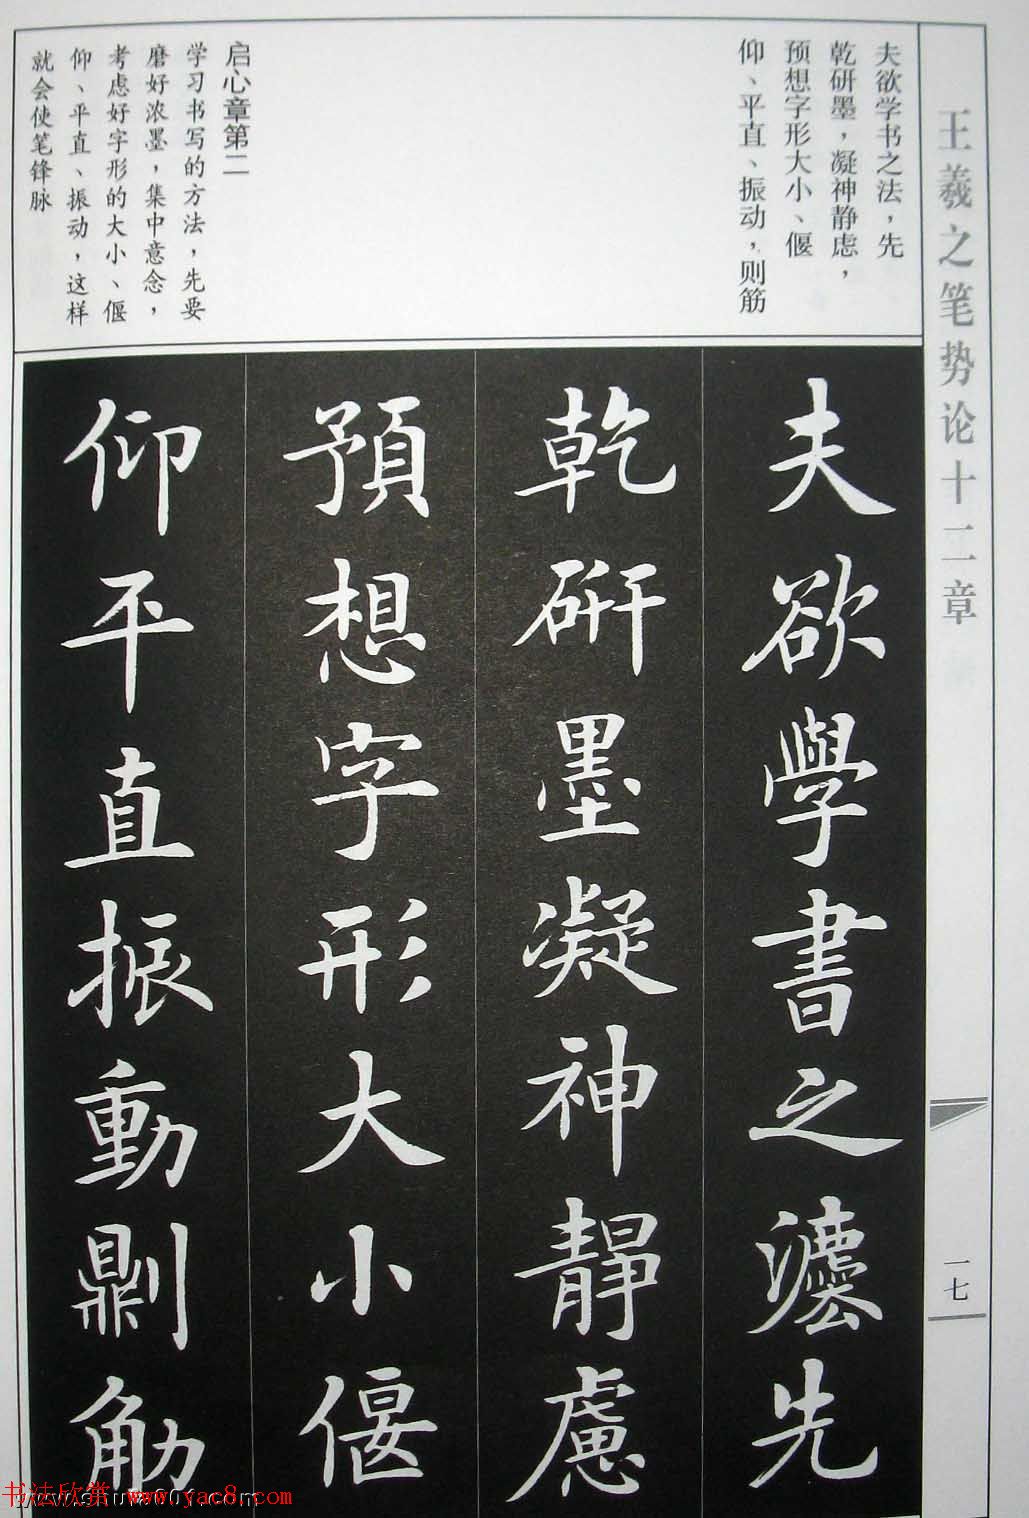 王羲之笔势论十二章
一七
夫欲学书之法，先
乾研墨，凝神静虑，
预想字形大小、偃
仰、平直、振动，则筋
启心章第二
学习书写的方法，先要
磨好浓墨，集中意念，
考虑好字形的大小、偃
仰、平直、振动，这样
就会使笔锋脉
夫欲學書之灋先
乾研墨凝神靜慮
預想字形大小偃
仰平直振動鼎刂筋
书法欣赏 www.yac8.com